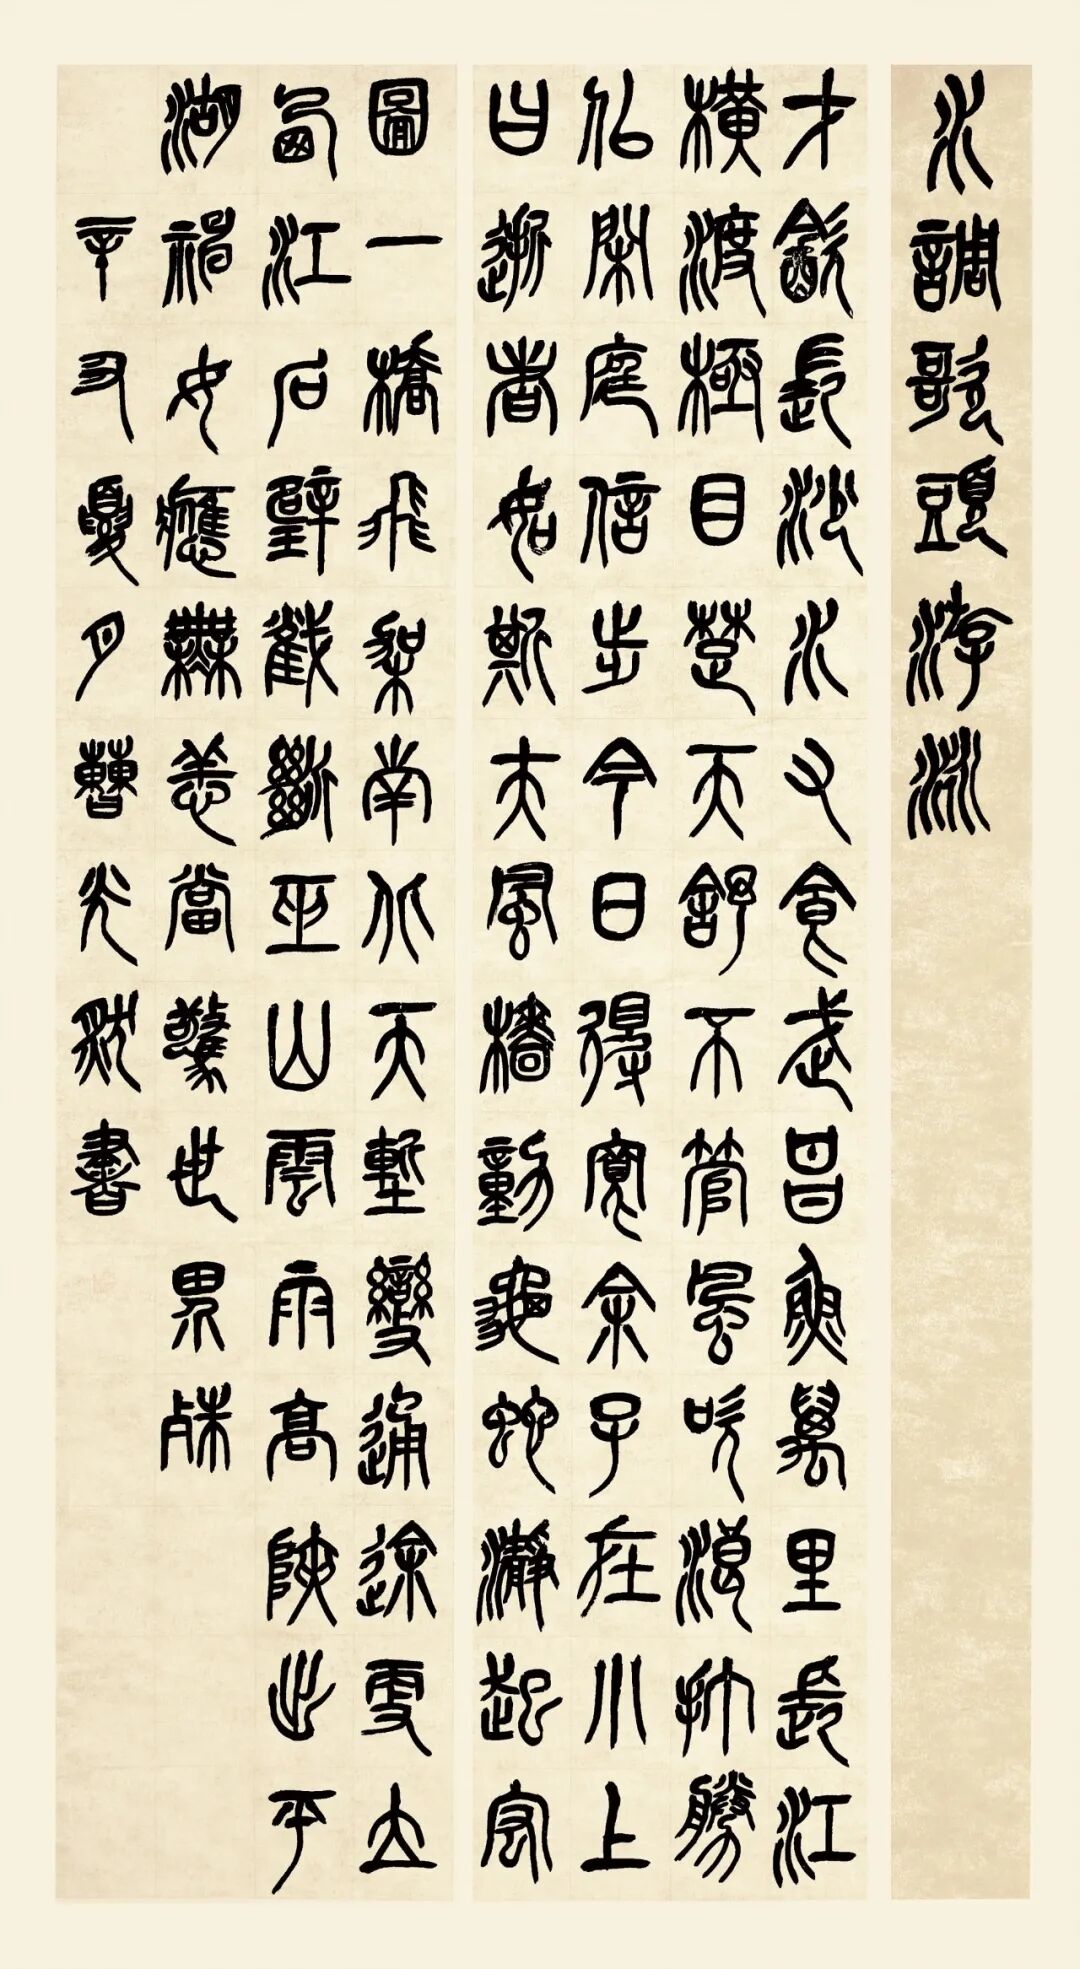 水調歌頭游泳
才飲長沙水又食武昌魚萬里長江
橫渡極目楚天舒不管風吹浪打勝
似閑庭信步今日得寬余子在川上
曰逝者如斯夫風檣動龜蛇瀞起宏
圖一橋飛架南北天塹變通途更立
西江石壁截斷巫山雲雨高峽出平
湖神女應無恙當驚世界殊
辛丑夏月曹光書